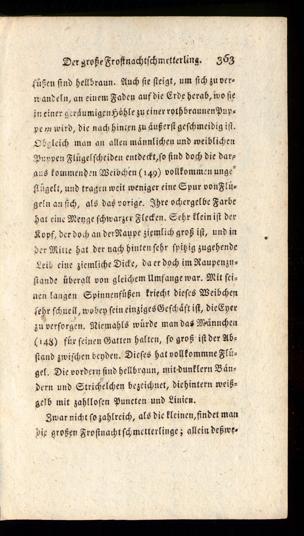 Der große Frostnachtschmetterling. 363
füßen sind hellbraun. Auch sie steigt, um sich zu ver-
wandeln, an einem Faden auf die Erde herab, wo sie
in einer geräumigen Höhle zu einer rothbraunen Pup-
pe m wird, die nach hinten zu äußerst geschmeidig ist.
Obgleich man an allen männlichen und weiblichen
Puppen Flügelscheiden entdeckt, so sind doch die dar-
aus kommenden Weibchen (149) vollkommen unge-
flügelt, und tragen weit weniger eine Spur von Flü-
geln an sich, als das vorige. Ihre ochergelbe Farbe
hat eine Menge schwarzer Flecken. Sehr klein ist der
Kopf, der doch an der Raupe ziemlich groß ist, und in
der Mitte hat der nach hinten sehr spitzig zugehende
Leib eine ziemliche Dicke, da er doch im Raupenzu-
stande überall von gleichem Umfange war. Mit sei-
nen langen Spinnenfüßen kriecht dieses Weibchen
sehr schnell, wobey sein einziges Geschäft ist, die Eyer
zu versorgen. Niemahls würde man das Männchen
(148) für seinen Gatten halten, so groß ist der Ab-
stand zwischen beyden. Dieses hat vollkommne Flü-
gel. Die vordern sind hellbraun, mit dunklern Bän-
dern und Strichelchen bezeichnet, die hintern weiß-
gelb mit zahllosen Puncten und Linien.
Zwar nicht so zahlreich, als die kleinen, findet man
die großen Frostnachtschmetterlinge; allein deßwe-